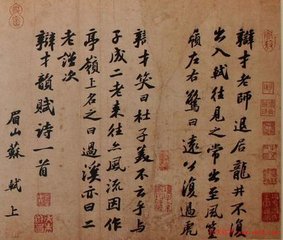 辯才老師退居龍井不復
出入軾往見之常出至風篁
嶺左右驚曰遠公復過虎
溪矣辯才笑曰杜子美不云乎與
子成二老來往亦風流因作
亭嶺上名之曰過溪亦曰二
老謹次
辯才韻賦詩一首
眉山蘇軾上